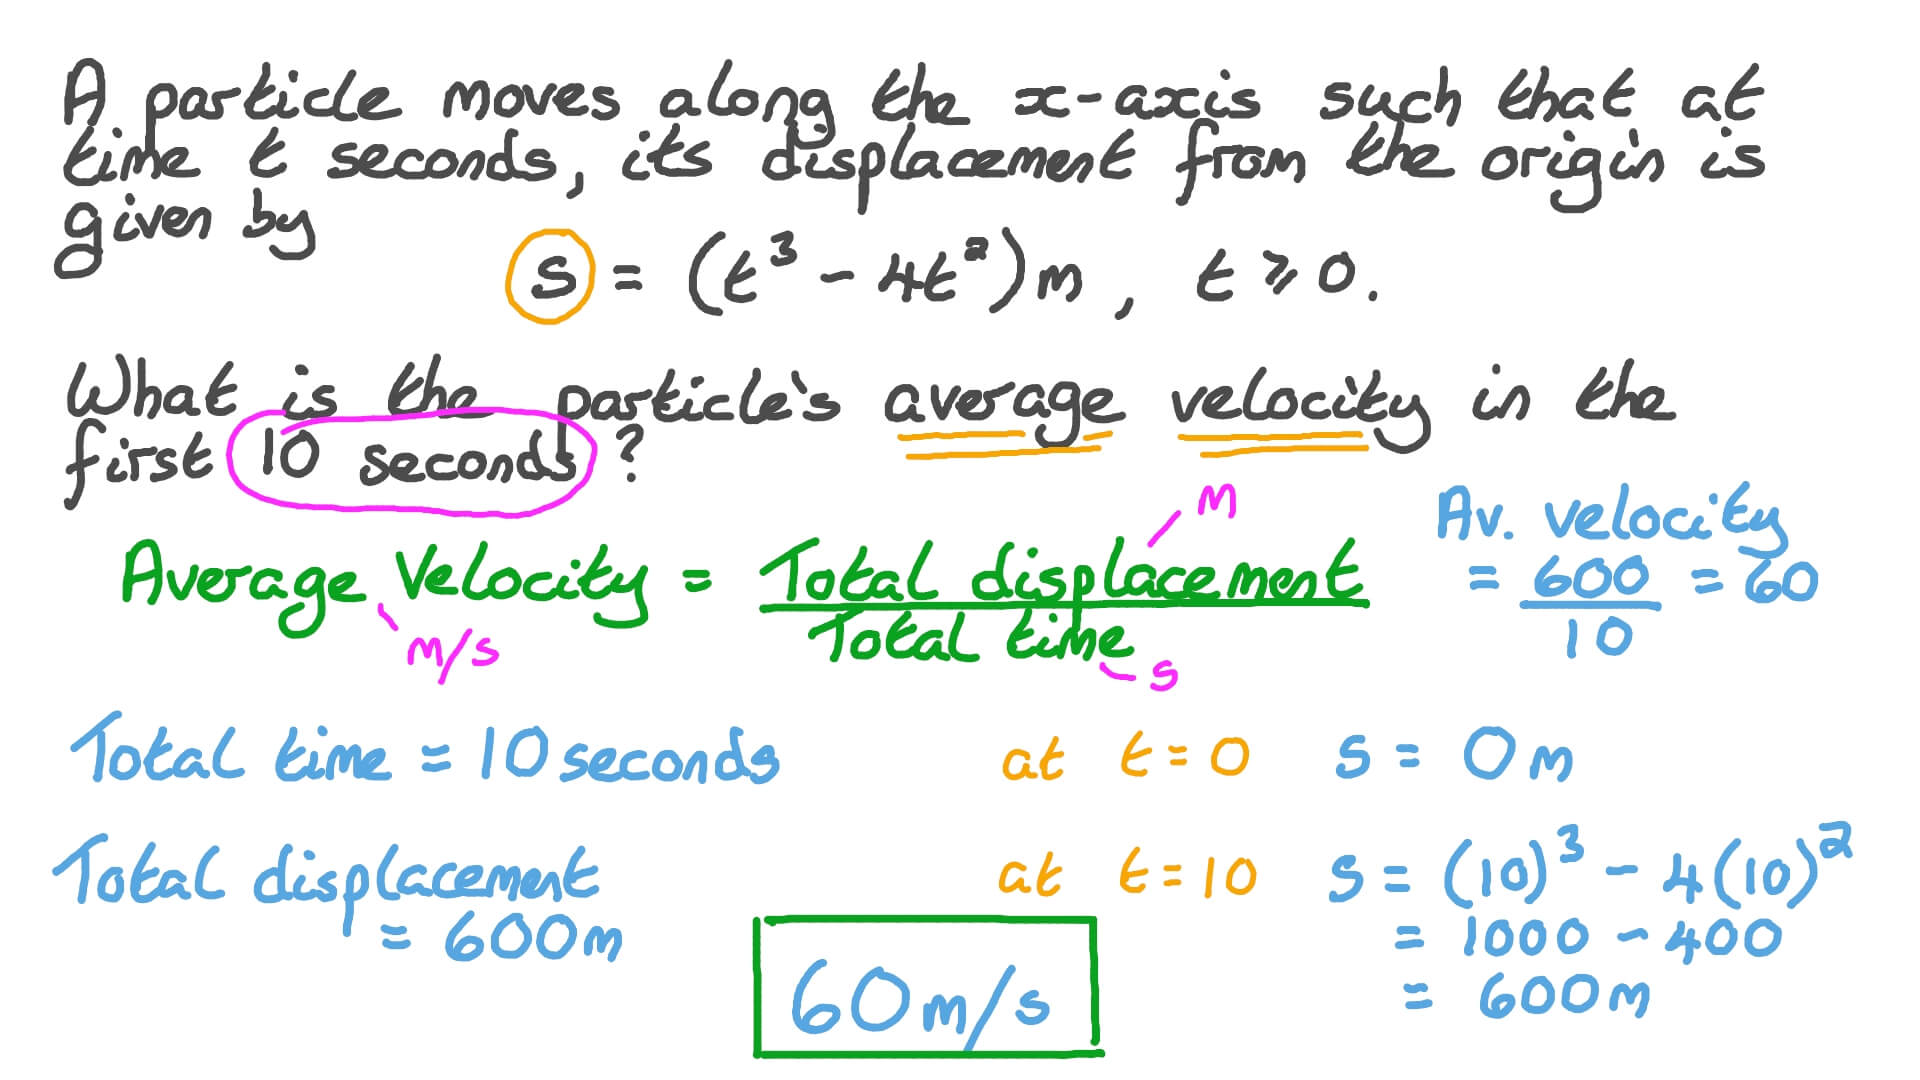 A particle moves along the x-axis such that at
time t seconds, its displacement from the origin is
given by
s = (t³ - 4t²)m, t ⩾ 0.
What is the particle's average velocity in the
first 10 seconds?
Average Velocity = Total displacement / Total time
m
m/s
s
Av. velocity
= 600/10 = 60
Total time = 10 seconds
at t = 0 s = 0m
Total displacement
= 600m
at t = 10 s = (10)³ - 4(10)²
= 1000 - 400
= 600m
60m/s